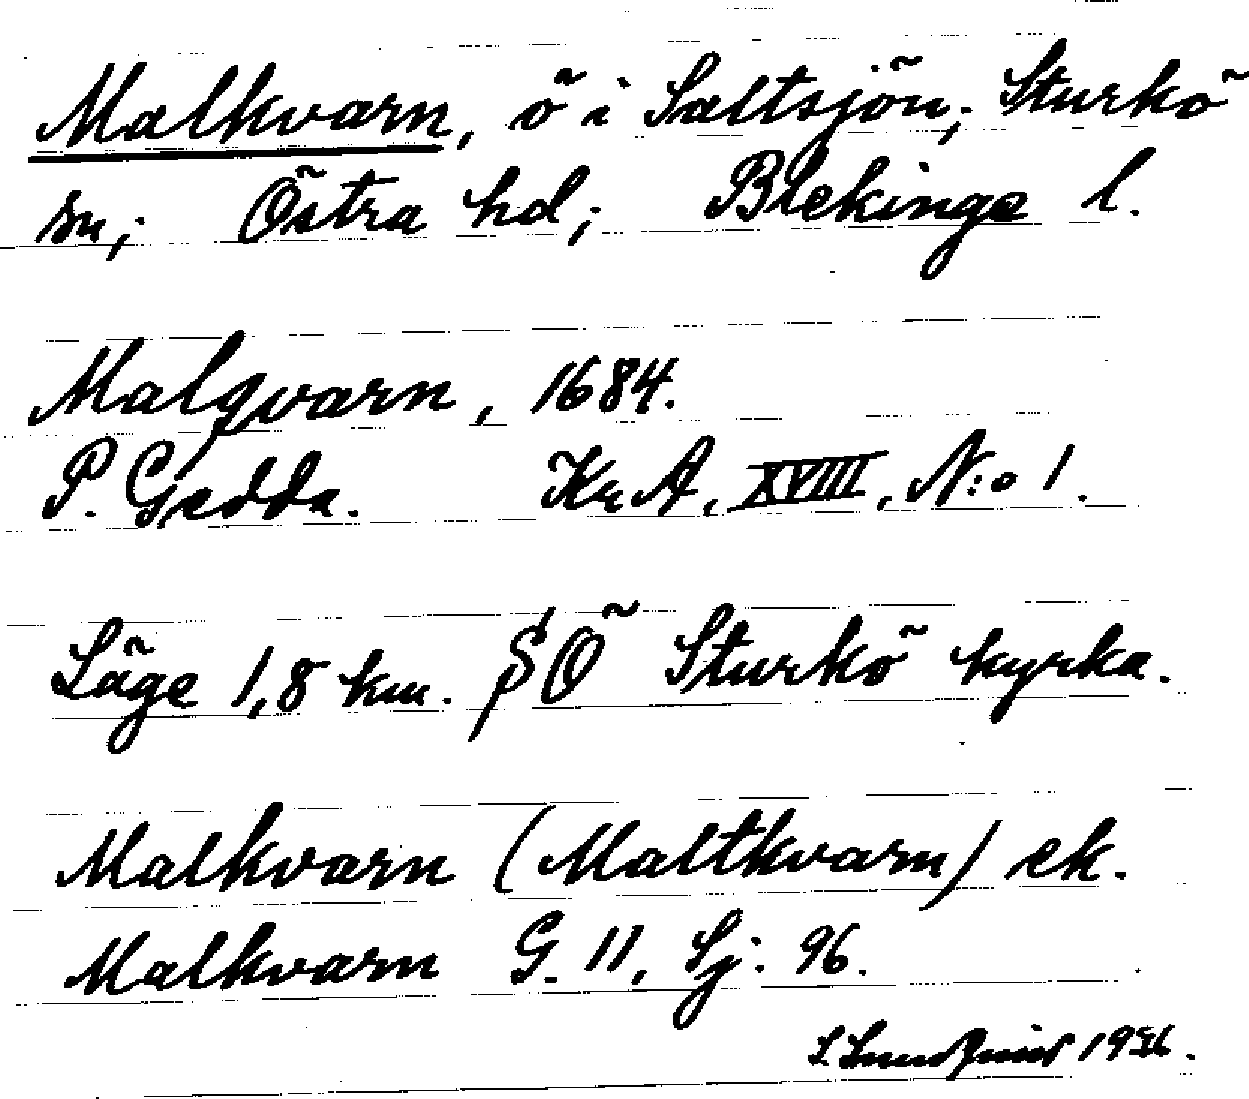 Malkvarn, ö i Saltsjön; Sturkö
sn; Östra hd; Blekinge l.
Malqvarn, 1684.
P. Gedda. Kr A, XVIII, N:o 1.
Läge 1,8 km. SÖ Sturkö kyrka.
Malkvarn (Maltkvarn) ek.
Malkvarn G. 11, Sj: 96.
1936.